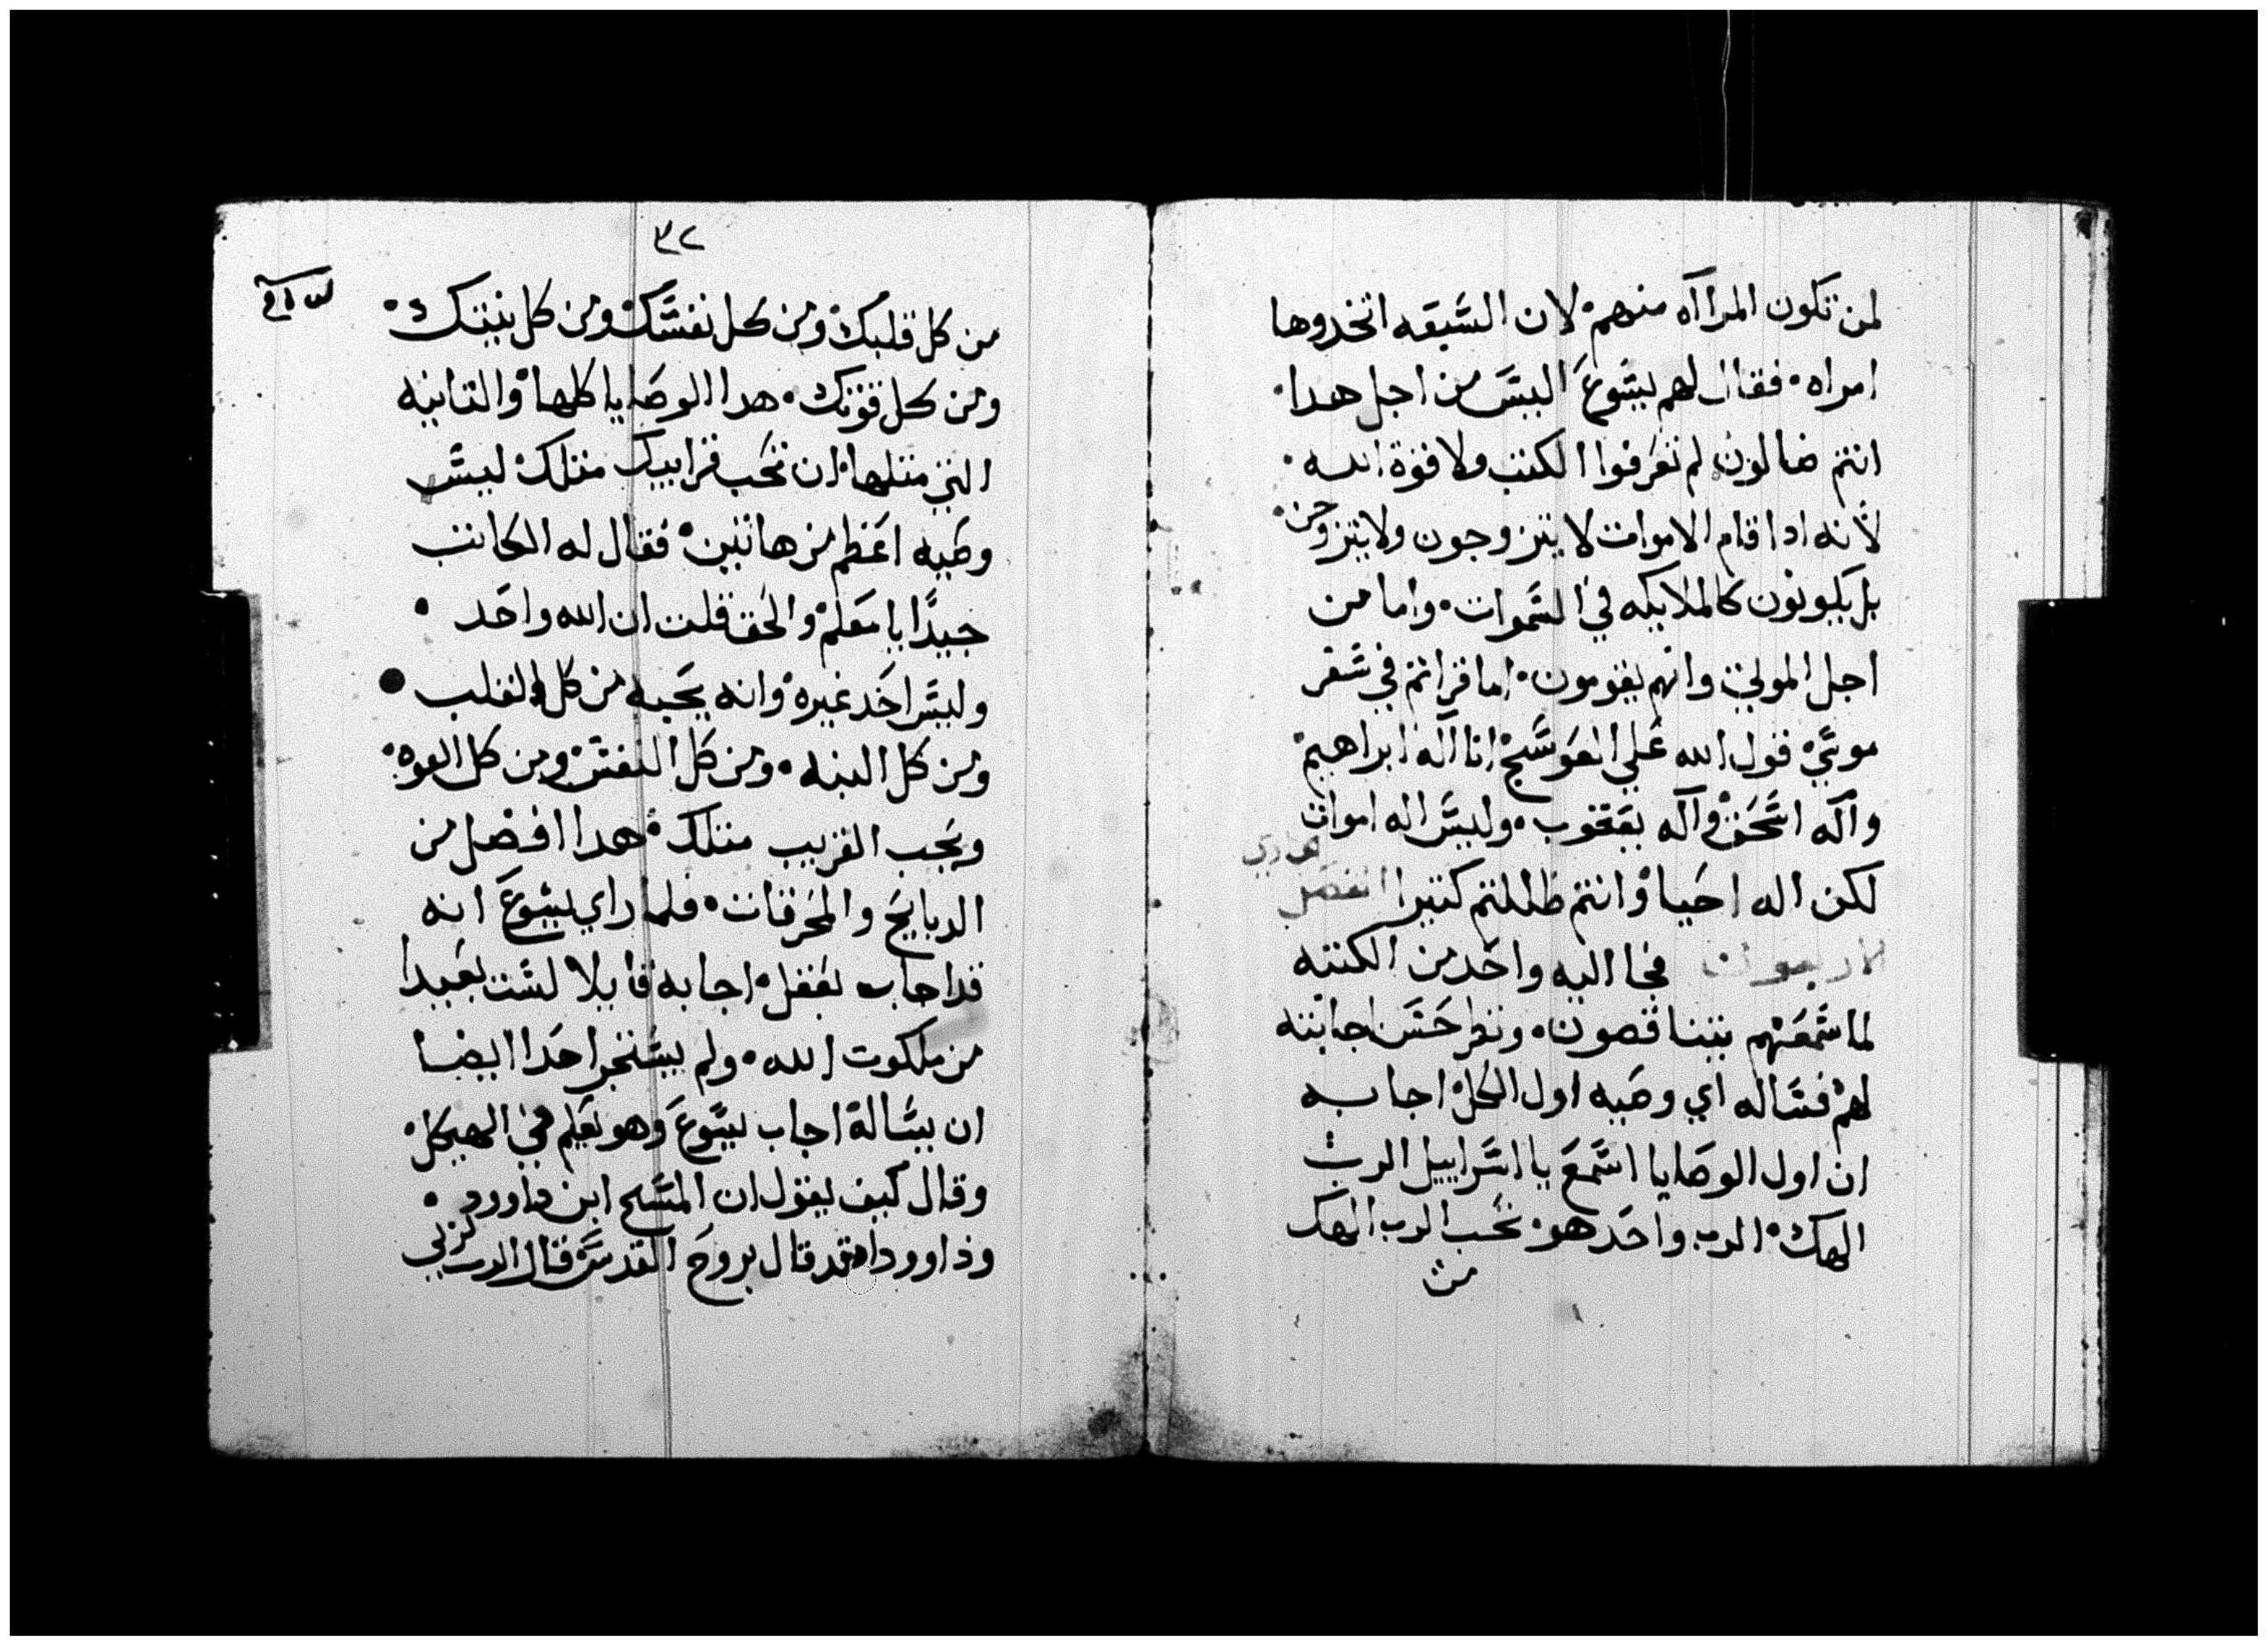 لمن تكون المراآه منهم لان السبعه اتخدوها
امراه فقال لهم يسوع اليس من اجل هدا
انتم ضالون لم تعرفوا الكتب ولا قوة الله
لانه ادا قام الاموات لا يتزوجون ولا يتزوجن
بل يكونون كالملايكه في السموات واما من
اجل الموتي وانهم يقومون اما قراتم في سفر
موسي قول الله علي العوسج انا اله ابراهيم
واله اسحق واله يعقوب وليس اله اموات
لكن اله احيا وانتم ظللتم كتيرا الفصل
الاربعون فجا اليه واحد من الكتبه
لما سمعهم يتناقصون ونظر حسن اجابته
لهم فساله اي وصيه اول الكل اجابه
ان اول الوصايا اسمع يا اسراييل الرب
الهك الرب واحد هو تحب الرب الهك
من
٣٢
من كل قلبك ومن كل نفسك ومن كل نيتك
ومن كل قوتك هدا الوصايا كلها والتانيه
التي متلها ان تحب قرابيك متلك ليس
وصيه اعظم من هاتين فقال له الكاتب
جيدا يا معلم والحق قلت ان الله واحد
وليس احد غيره وانه يحبه من كل القلب
ومن كل النيه ومن كل النفس ومن كل القوه
ويحب القريب متلك هدا افضل من
الدبايح والمحرقات فلما راي يسوع انه
قد اجاب بعقل اجابه قايلا لست بعيدا
من ملكوت الله ولم يستجر احدا ايضا
ان يساله اجاب يسوع وهو يعلم في الهيكل
وقال كيف يقول ان المسيح ابن داوود
وداوود قد قال بروح القدس قال الرب لربي